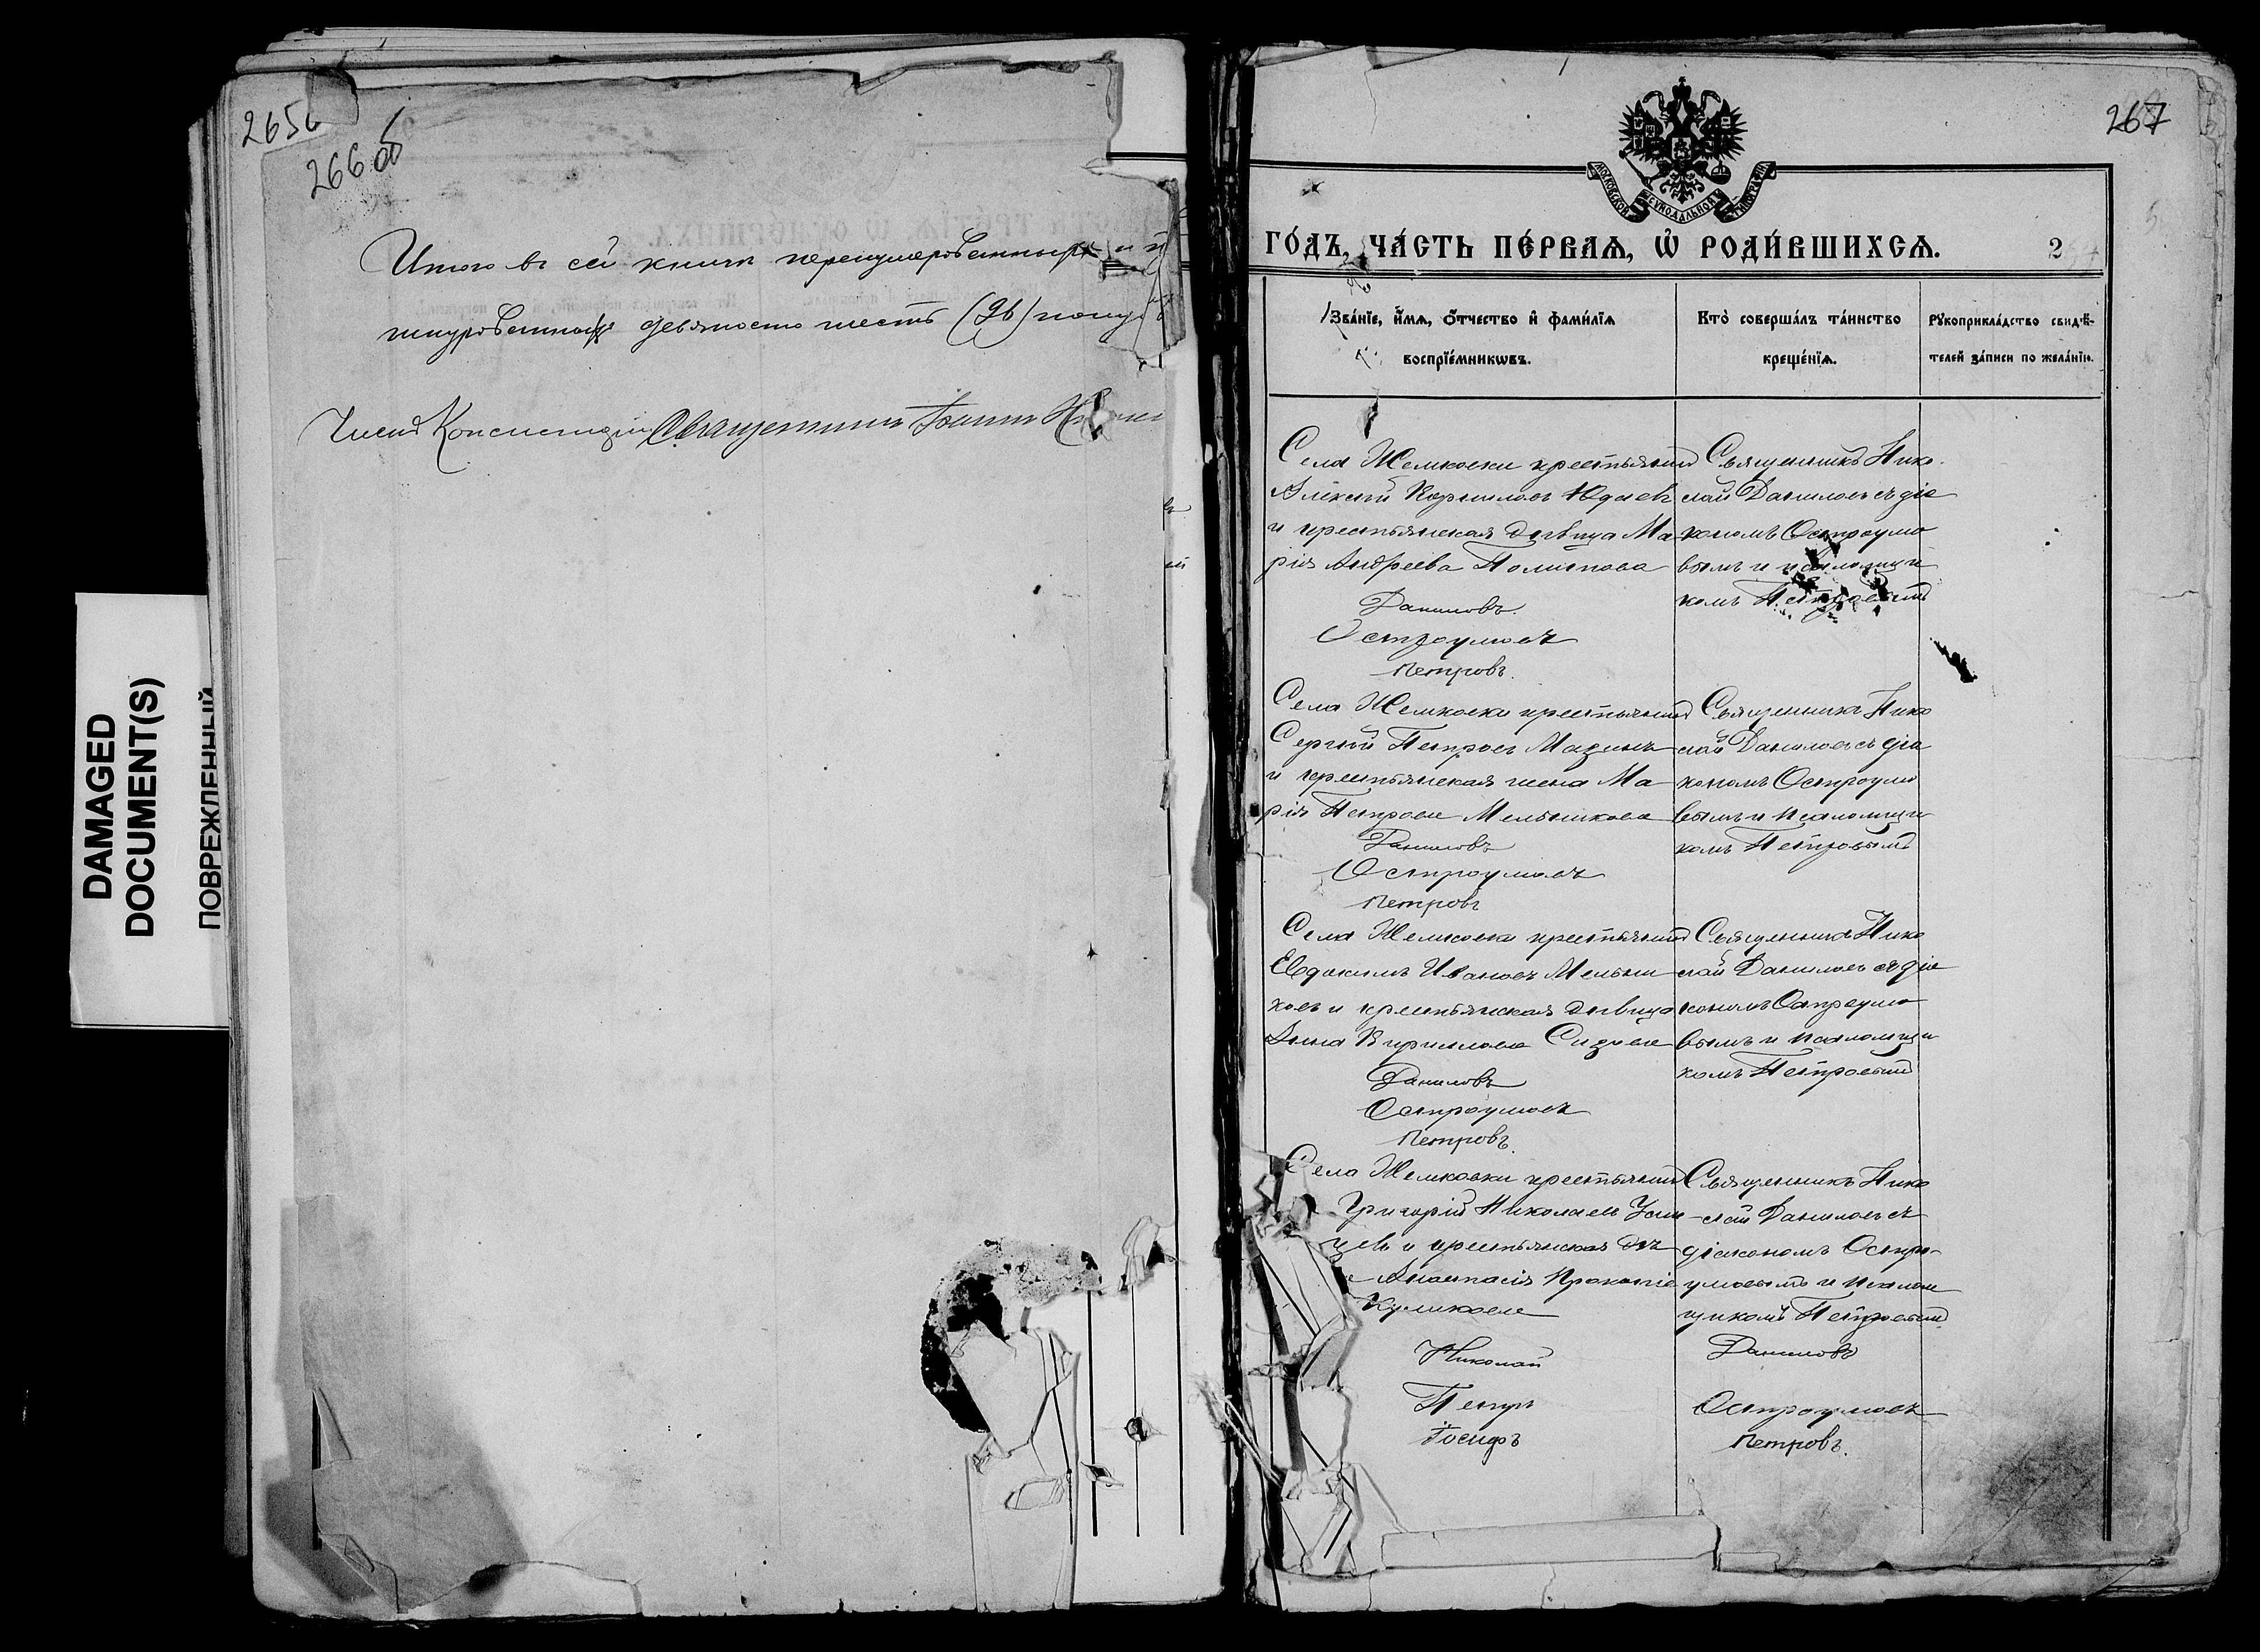 DAMAGED
DOCUMENT(S)
ПОВРЕЖДЕННЫЙ
265
266об
Итого въ сей книгѣ перенумерованныхъ и
шнурованныхъ девяносто шесть (96) полу
Членъ Консисторіи Священникъ Іоаннъ
267
МОСКОВСКОЙ СѴНОДАЛЬНОЙ ТИПОГРАФІИ
ГО́ДЪ, ЧА́СТЬ ПЕ́РВАѦ, Ѡ҆ РОДИ́ВШИХСѦ.
2
Зва́нїе, и҆́мѧ, ѻ҆́тчество и҆ фами́лїѧ
воспрїе́мникѡвъ.
Кто̀ соверша́лъ та́инство
креще́нїѧ.
Рꙋкоприкла́дство свидѣ́-
телей за́писи по жела́нїю.
Села Жемковки крестьянинъ
Алексій Корнилов Юдаев
и крестьянская дѣвица Ма-
рія Андреева
Даниловъ.
Остроумовъ
Петровъ.
Священникъ Нико-
лай Даниловъ съ діа
кономъ Остроумо
вымъ и псаломщи
комъ Петровымъ
Села Жемковки крестьянинъ
Сергій Петровъ Мазинъ
и крестьянская жена Ма-
рія Петрова Мельникова
Даниловъ
Остроумовъ
Петровъ
Священникъ Нико
лай Даниловъ съ діа
кономъ Остроумо
вымъ и псаломщи
комъ Петровымъ
Села Жемковки крестьянинъ
Евдокимъ Ивановъ Мельни
ковъ и крестьянская дѣвица
Анна Кириллова Сизова
Даниловъ
Остроумовъ
Петровъ.
Священникъ Нико
лай Даниловъ съ діа
кономъ Остроумо
вымъ и псаломщи
комъ Петровымъ
Села Жемковки крестьянинъ
Григорій Николаевъ
и крестьянская дѣ
Анастасія Прокопіе
Куликова
Николай
Петръ
Іосифъ
Священникъ Нико
лай Даниловъ съ
діакономъ Остро-
умовымъ и псалом
щикомъ Петровымъ
Даниловъ
Остроумовъ
Петровъ.